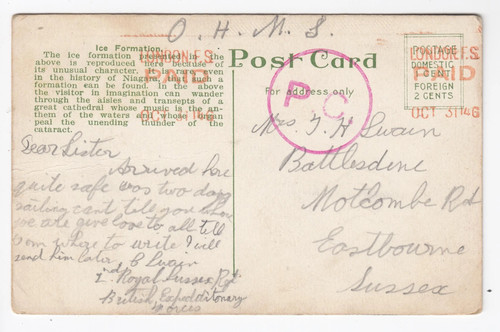 O. H. M. S.
Ice Formation.
The ice formation presented in the
above is reproduced here because of
its unusual character.
in the history of Niagara has such a
formation been found. In the above
the visitor in imagination can wander
through the aisles and transepts of a
great cathedral whose music is the an-
them of the waters and whose organ
peal the unending thunder of the
cataract.
LONDON F.S.
PAID
Post Card
For address only
P.C.
POSTAGE
DOMESTIC
1 CENT
FOREIGN
2 CENTS
LONDON F.S.
PAID
OCT 31 14 6
Dear Sister
Arrived here
quite safe was two days
sailing cant tell you where
we are give love to all tell
Tom where to write I will
send him later E Swain
2nd Royal Sussex Rgt
British Expeditionary
Forces
Mrs. T. H Swain
Battlesdene
Motcombe Rd
Eastbourne
Sussex